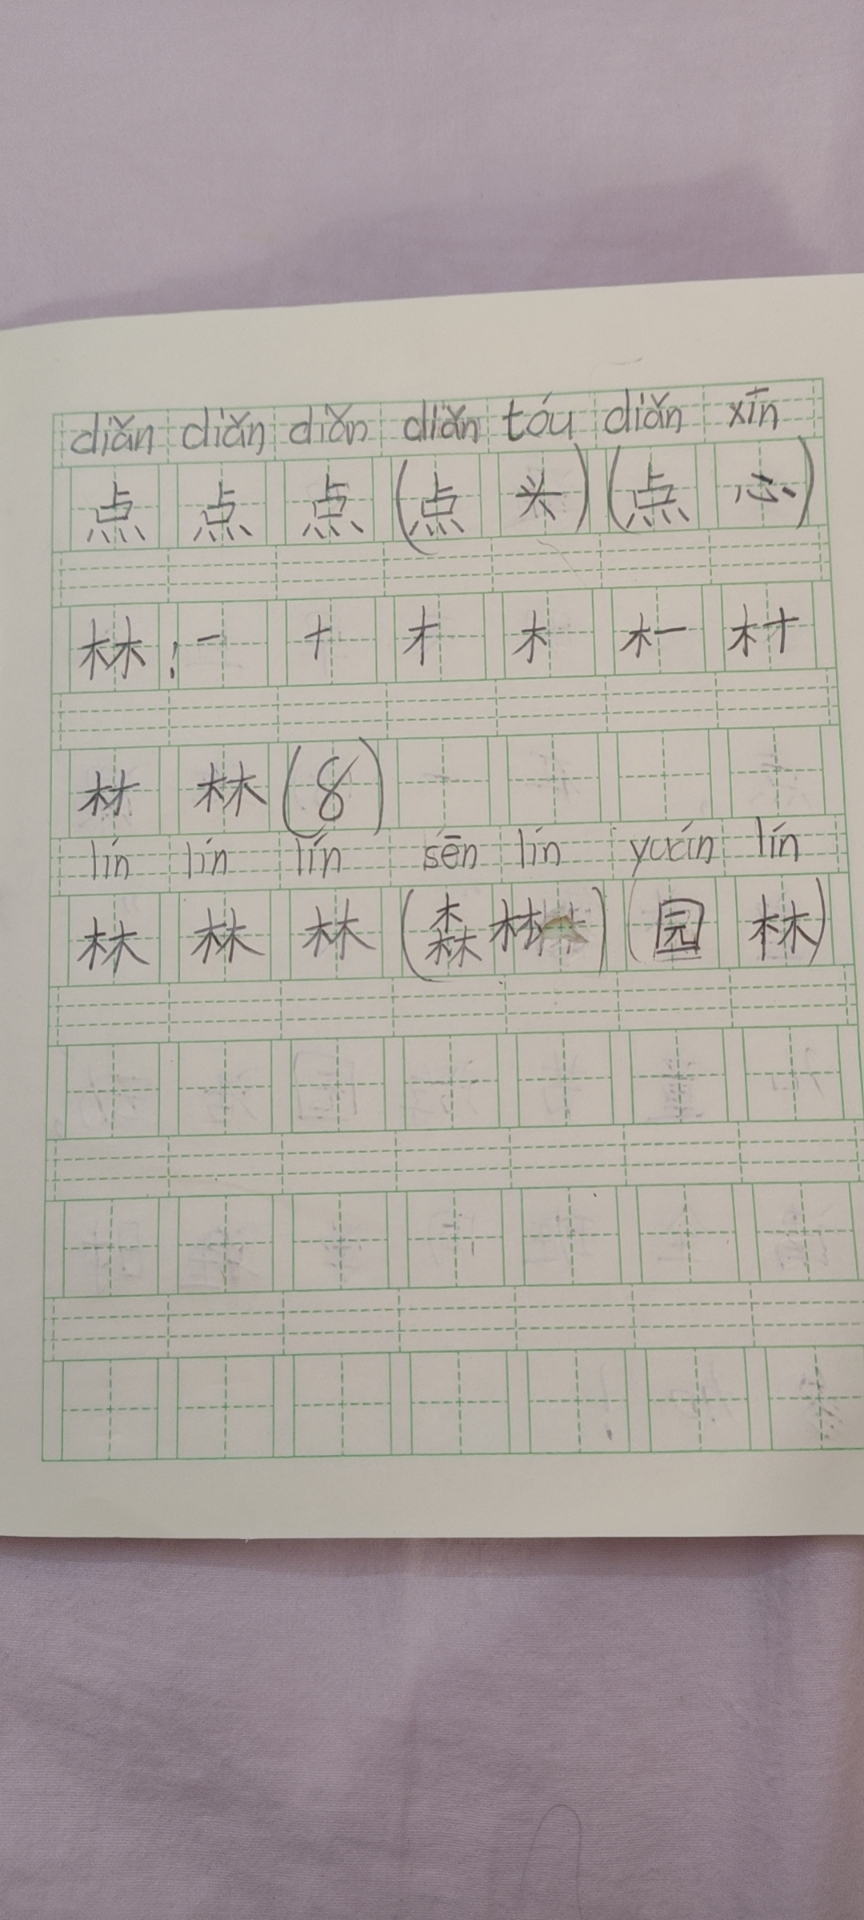 diǎn diǎn diǎn diǎn tóu diǎn xīn
点 点 点 (点 头) (点 心)
林: 一 十 才 木 木一 木十
材 林 (8)
lín lín lín sēn lín yuán lín
林 林 林 (森 林) (园 林)